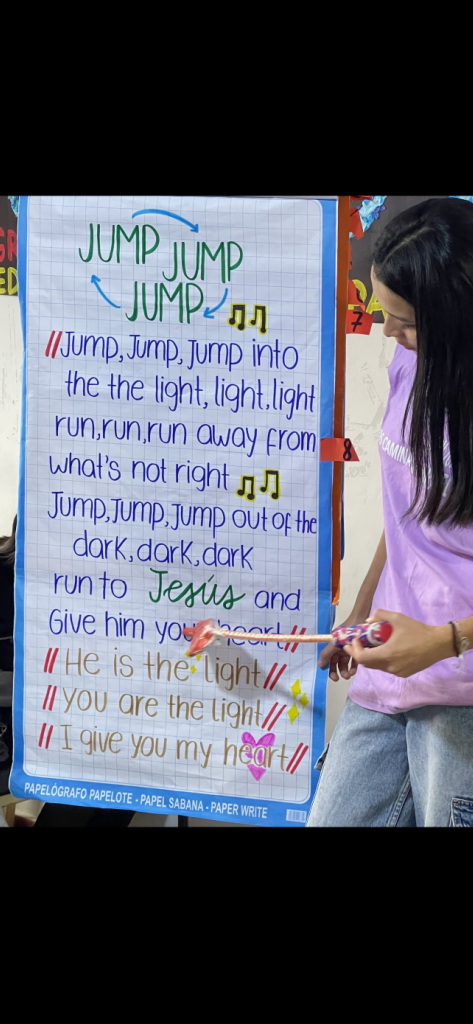 JUMP JUMP
JUMP
//Jump, Jump, Jump into
the the light, light, light
run, run, run away from
what's not right
Jump, Jump, Jump out of the
dark, dark, dark
run to Jesús and
Give him your heart//
// He is the light//
// you are the light//
// I give you my heart//
PAPELÓGRAFO PAPELOTE - PAPEL SABANA - PAPER WRITE
7
8